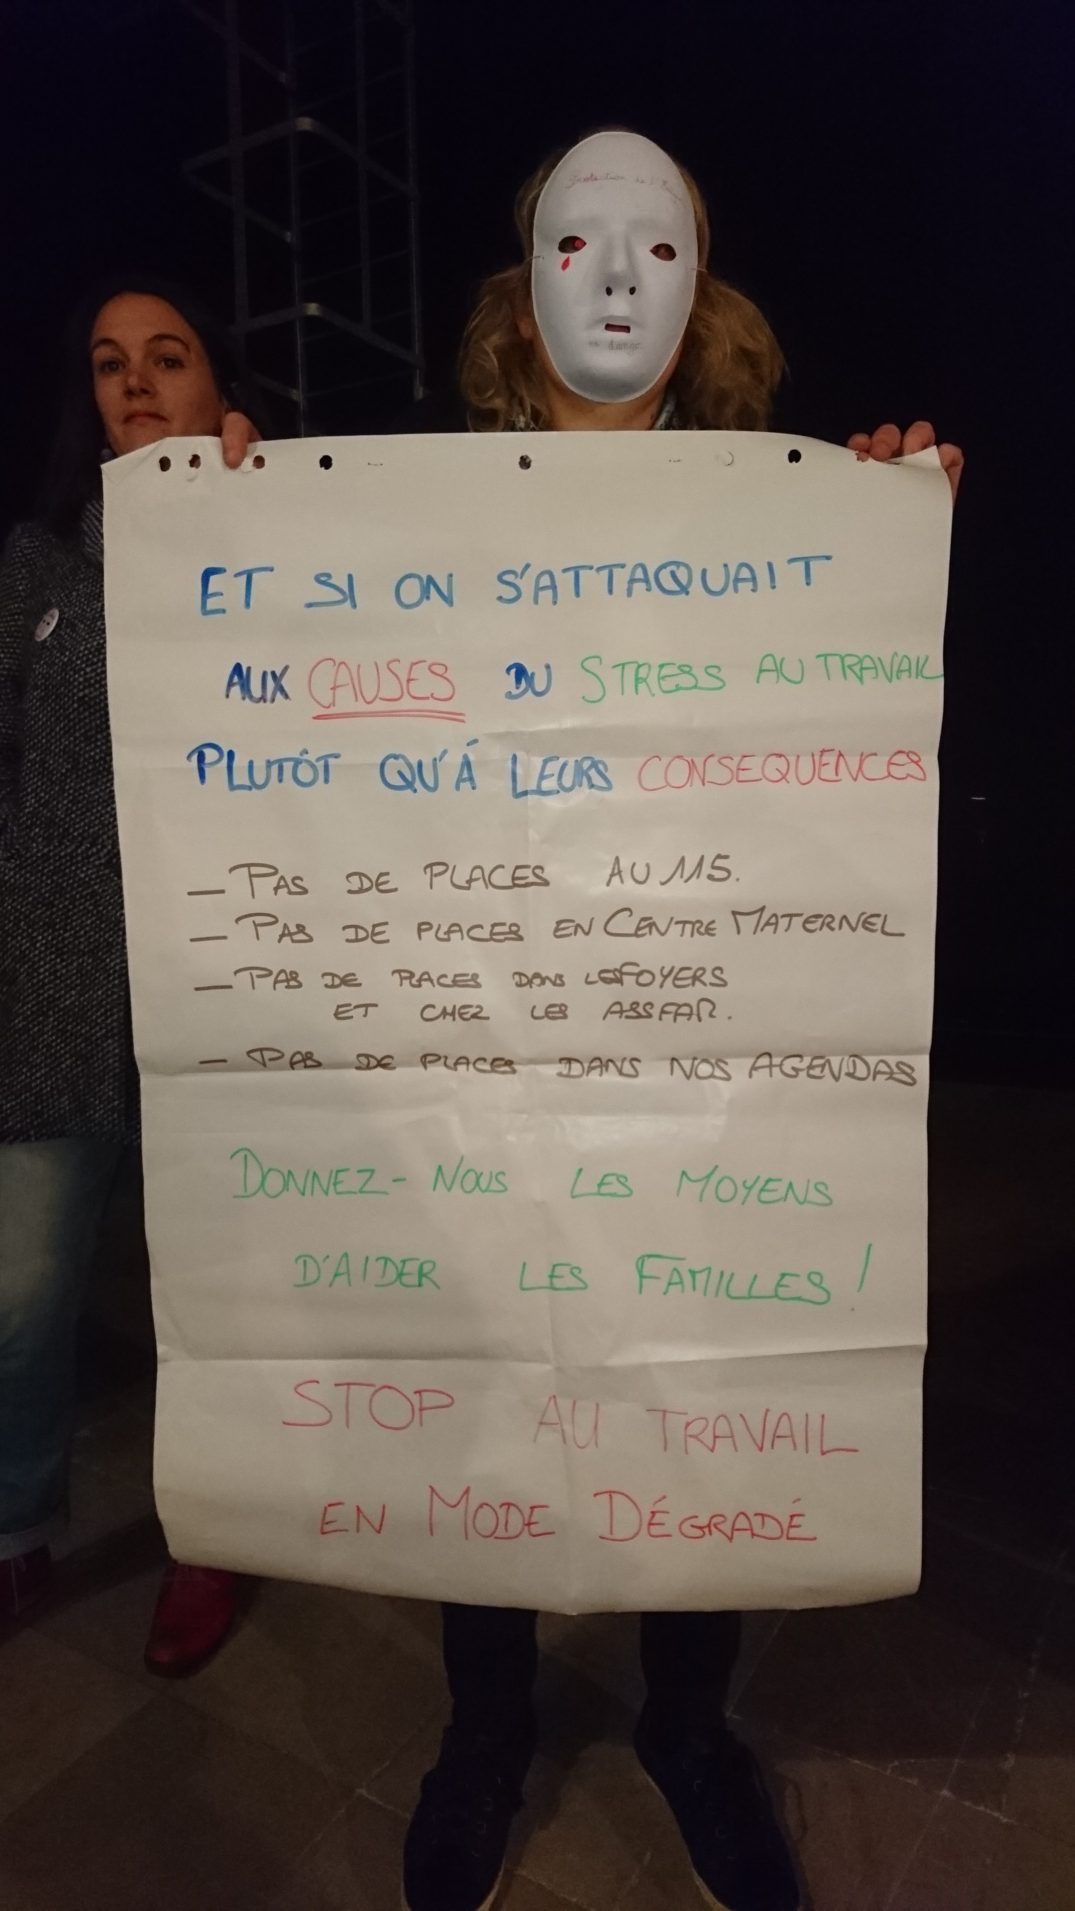 Protection de l'
en danger
ET SI ON S'ATTAQUAIT
AUX CAUSES DU STRESS AU TRAVAIL
PLUTÔT QU'Á LEURS CONSEQUENCES
— PAS DE PLACES AU 115.
— PAS DE PLACES EN CENTRE MATERNEL
— PAS DE PLACES DANS LES FOYERS
ET CHEZ LES ASSFAM.
— PAS DE PLACES DANS NOS AGENDAS
DONNEZ-NOUS LES MOYENS
D'AIDER LES FAMILLES !
STOP AU TRAVAIL
EN MODE DÉGRADÉ